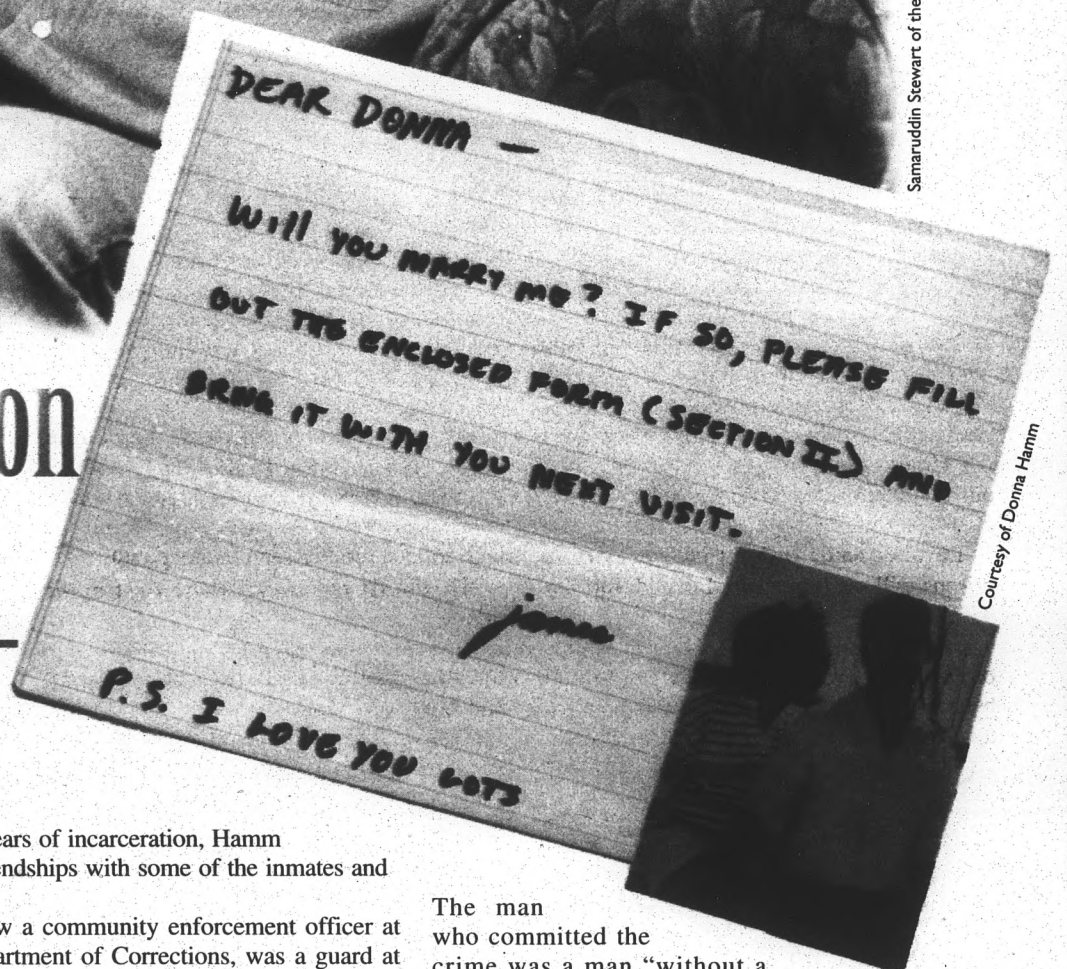 Samaruddin Stewart of the
DEAR DONNA —
WILL YOU MARRY ME? IF SO, PLEASE FILL
OUT THE ENCLOSED FORM (SECTION II) AND
BRING IT WITH YOU NEXT VISIT.
james
P.S. I LOVE YOU LOTS
Courtesy of Donna Hamm
on
ears of incarceration, Hamm
endships with some of the inmates and
w a community enforcement officer at
artment of Corrections, was a guard at
The man
who committed the
crime was a man "without a